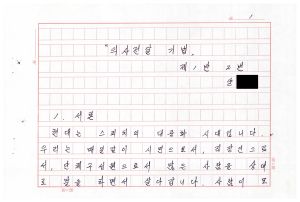 1
"의사전달 기법.
제 1 반 2 번
1. 서론
현대는 스피치의 대중화 시대입니다.
우리는 매일같이 시민으로서, 직장인으로
서, 단체 구성원으로서 많은 사람을 상대
로 말을 하면서 살아갑니다. 사람이 모